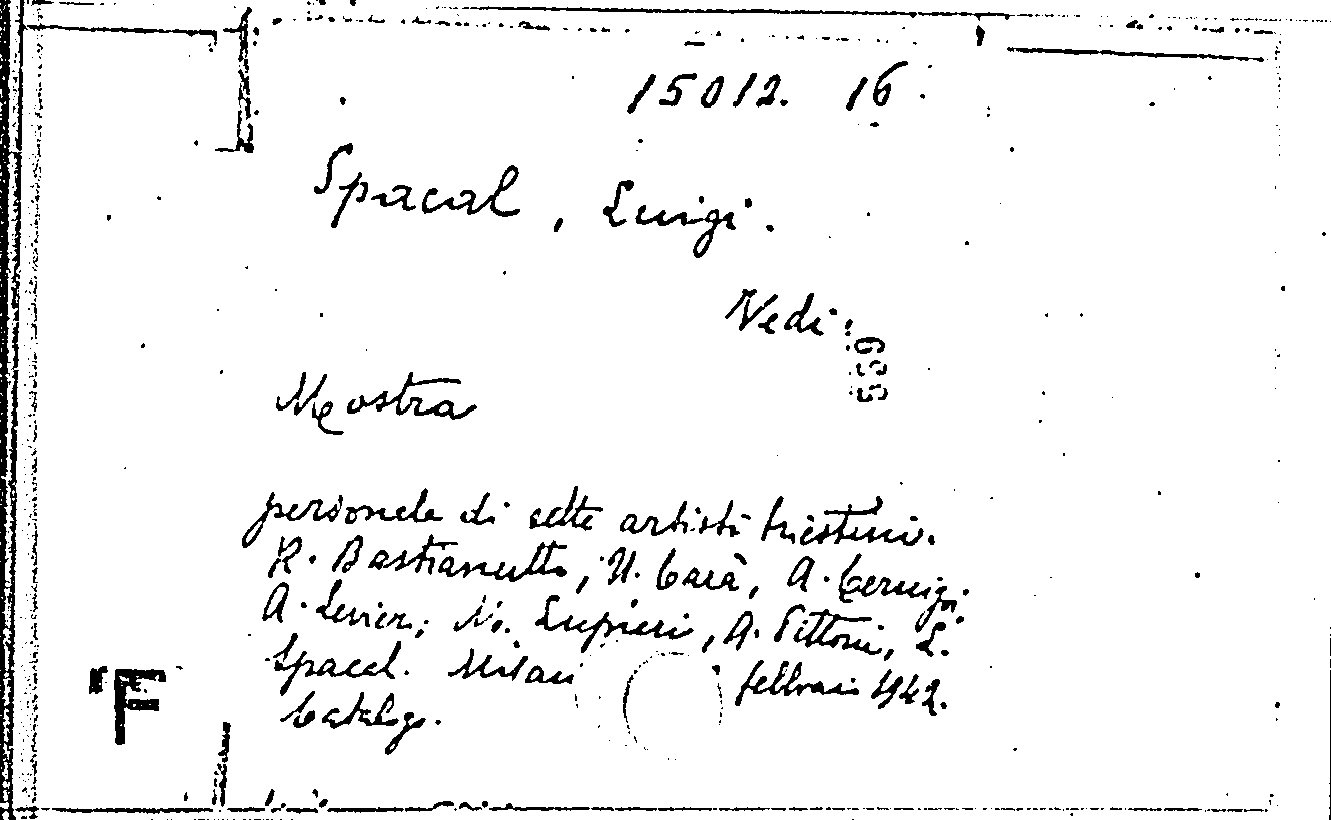 15012. 16.
Spacal, Luigi.
Vedi:
559
Mostra
personale di sette artisti triestini.
R. Bastianutto, U. Carà, A. Cernigoi.
A. Levier; N. Lupieri, A. Pittoni, L.
Spacal. Milano febbraio 1942.
Catalogo.
F